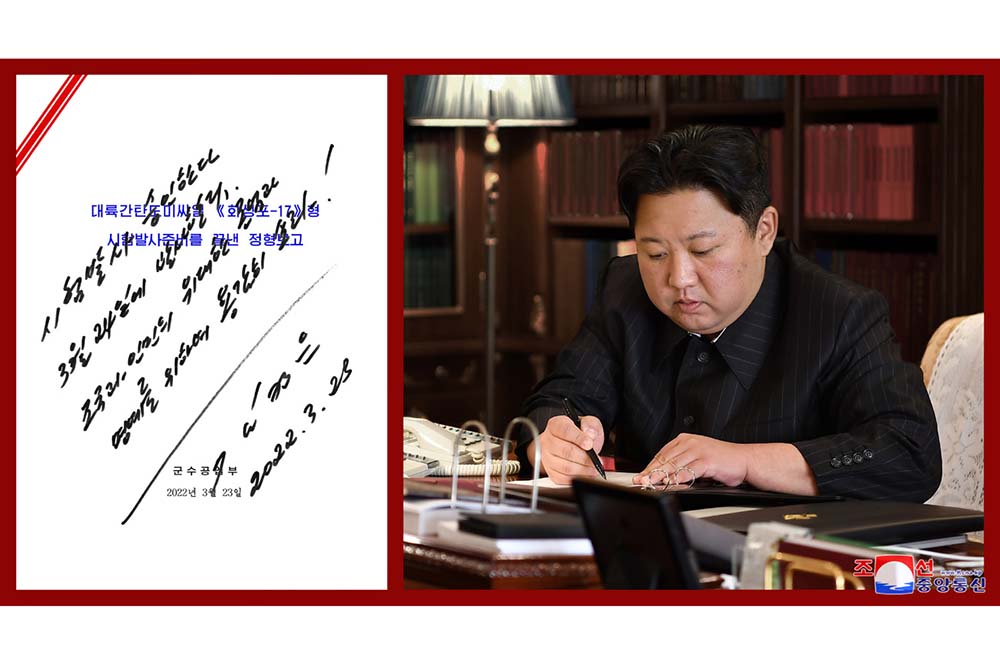 시험발사 승인한다
3월 24일에 발사한다.
조국과 인민의 위대한 존엄과
명예를 위하여 용감히 쏘라!
대륙간탄도미싸일 《화성포-17》형
시험발사준비를 끝낸 정형보고
김정은
2022. 3. 23
군수공업부
2022년 3월 23일
조선
중앙통신